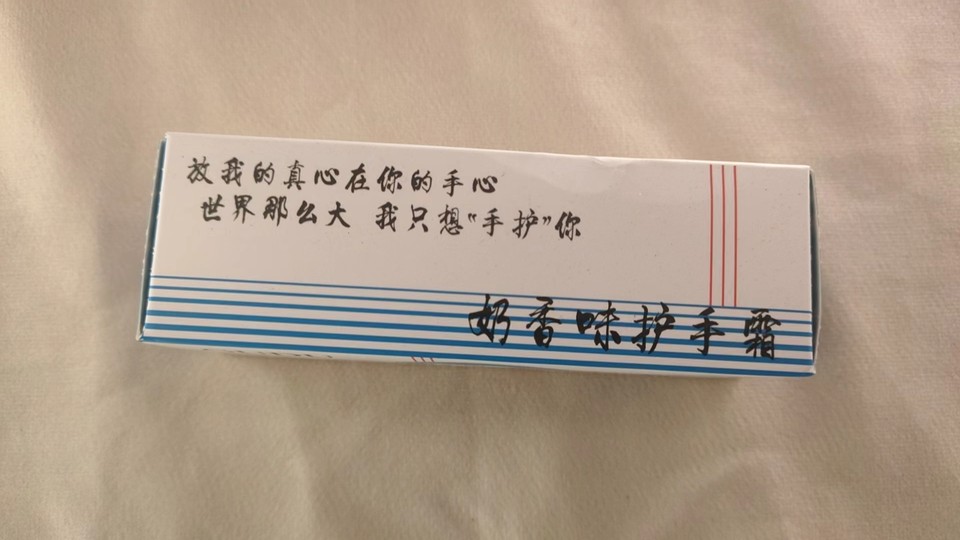 放我的真心在你的手心
世界那么大 我只想“手护”你
奶香味护手霜